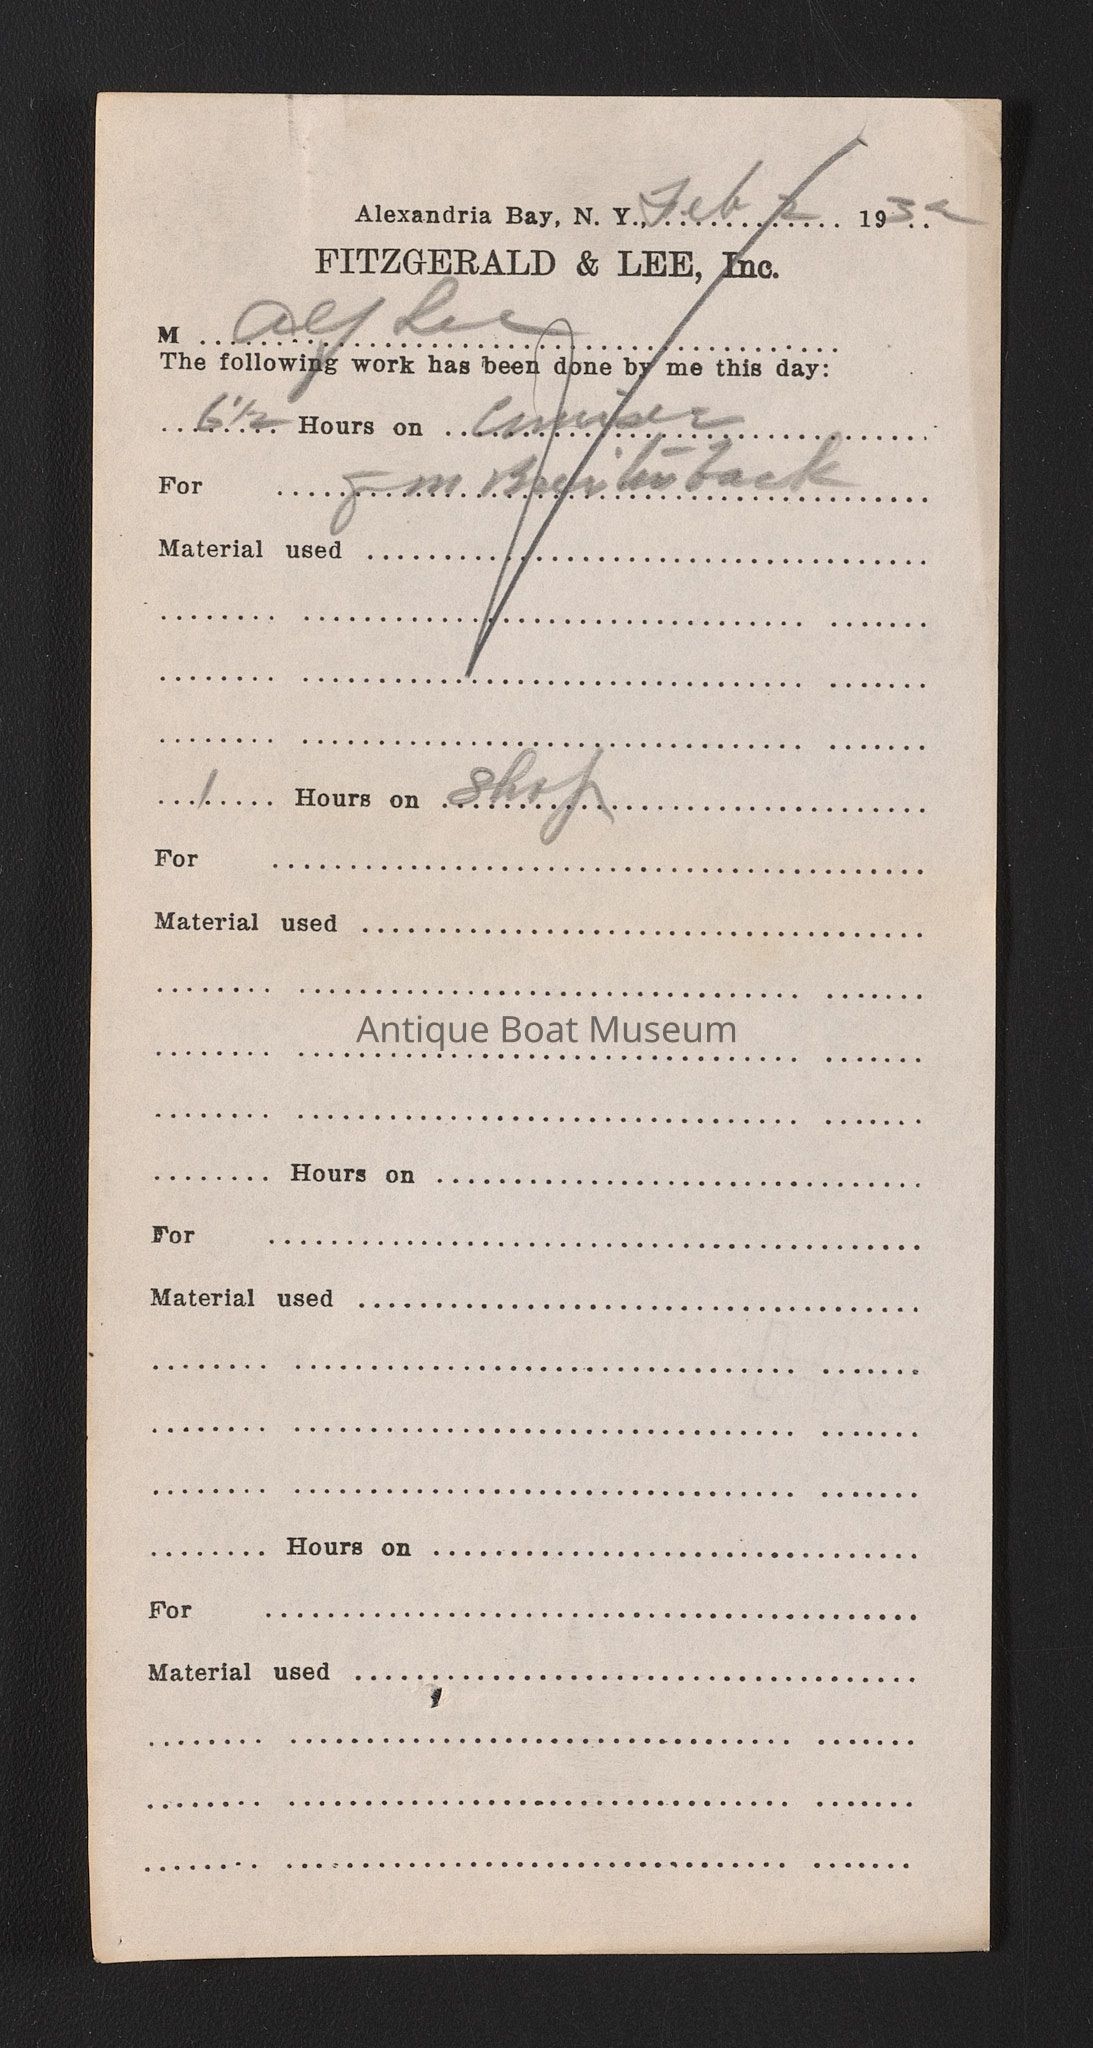 Alexandria Bay, N. Y., Feb 2 1932
FITZGERALD & LEE, Inc.
M Alf Lee
The following work has been done by me this day:
6 1/2 Hours on Cruiser
For J M Breitenback
Material used
1 Hours on Shop
For
Material used
Antique Boat Museum
Hours on
For
Material used
Hours on
For
Material used